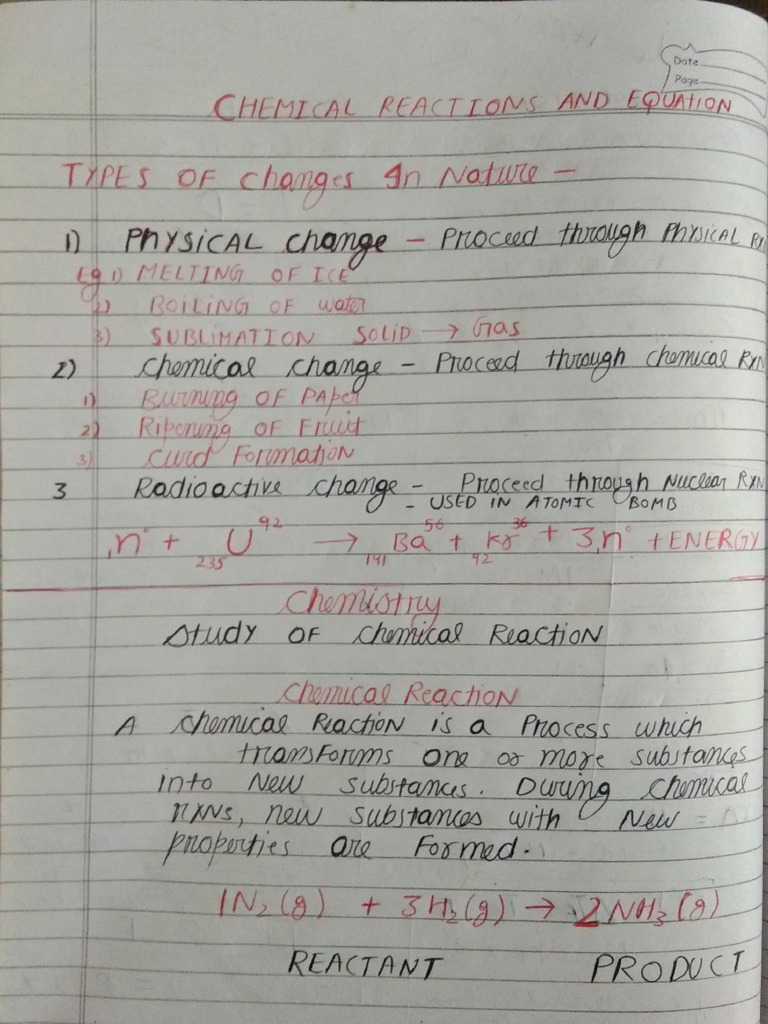 Date
Page
CHEMICAL REACTIONS AND EQUATION
TYPES OF Changes In Nature -
1) PHYSICAL change - Proceed through PHYSICAL RX
Eg 1) MELTING OF ICE
2) BOILING OF water
3) SUBLIMATION SOLID → Gas
2) Chemical change - Proceed through chemical RXN
1) Burning OF PAPer
2) Ripening OF Fruit
3) Curd Formation
3 Radioactive change - Proceed through Nuclear RXN
- USED IN ATOMIC BOMB
₁n⁰ + ₂₃₅U⁹² → ₁₄₁Ba⁵⁶ + ₉₂Kr³⁶ + 3₁n⁰ + ENERGY
Chemistry
Study OF Chemical Reaction
Chemical Reaction
A Chemical Reaction is a Process which
transforms one or more substances
into New substances. During chemical
rxns, new substances with New
properties are Formed.
1N₂(g) + 3H₂(g) → 2NH₃(g)
REACTANT PRODUCT